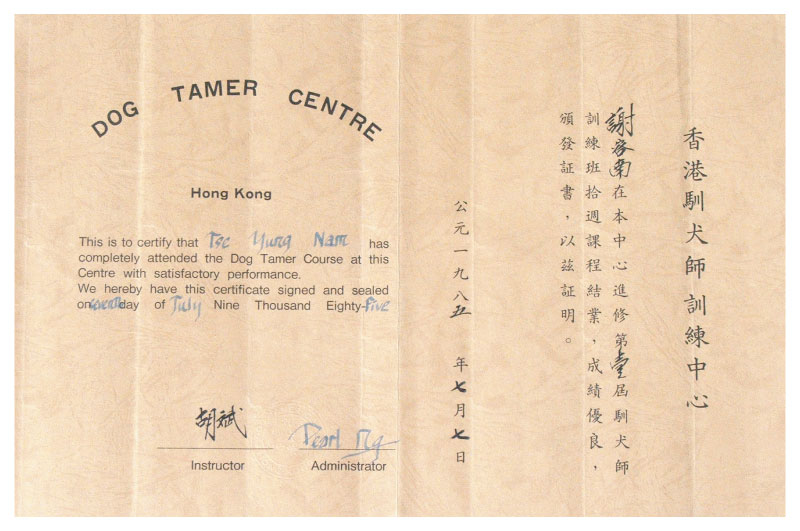 DOG TAMER CENTRE
Hong Kong
This is to certify that Tse Yung Nam has
completely attended the Dog Tamer Course at this
Centre with satisfactory performance.
We hereby have this certificate signed and sealed
on day of July Nine Thousand Eighty-Five
胡斌
Pearl Ng
Instructor
Administrator
香港馴犬師訓練中心
謝容南在本中心進修第壹屆馴犬師
訓練班拾週課程結業，成績優良，
頒發証書，以茲証明。
公元一九八五年七月七日